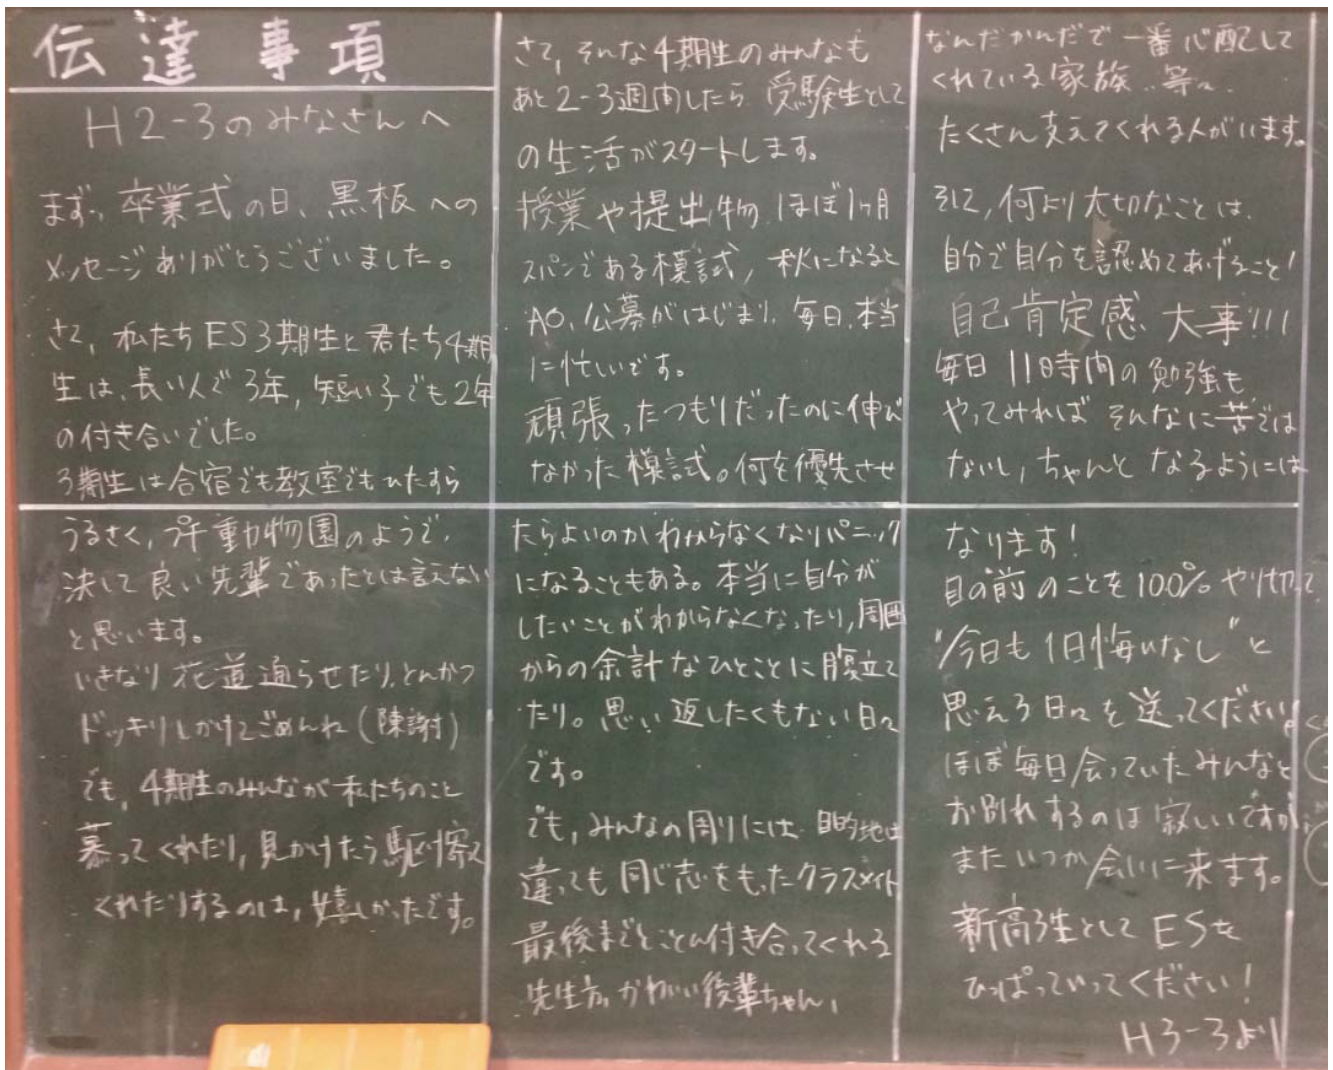 伝達事項
H2-3のみなさんへ
まず、卒業式の日、黒板への
メッセージありがとうございました。
さて、私たちES3期生と君たち4期
生は、長い人で3年, 短い子でも2年
の付き合いでした。
3期生は合宿でも教室でもひたすら
うるさく, プチ動物園のようで,
決して良い先輩であったとは言えない
と思います。
いきなり花道通らせたり、とんかつ
ドッキリしかけてごめんね(陳謝)
でも, 4期生のみんなが私たちのこと
慕ってくれたり, 見かけたら駆け寄って
くれたりするのは, 嬉しかったです。
さて, そんな4期生のみんなも
あと2-3週間したら 受験生として
の生活がスタートします。
授業や提出物、ほぼ1ヶ月
スパンである模試, 秋になると
AO、公募がはじまり、毎日、本当
に忙しいです。
頑張ったつもりだったのに伸び
なかった模試。何を優先させ
たらよいのかわからなくなりパニック
になることもある。本当に自分が
したいことがわからなくなったり, 周囲
からの余計なひとことに腹立て
たり。思い返したくもない日々
です。
でも, みんなの周りには 目的地は
違っても同じ志をもったクラスメイト
最後までとことん付き合ってくれる
先生方, かわいい後輩ちゃん、
なんだかんだで一番心配して
くれている家族…等々、
たくさん支えてくれる人がいます。
そして, 何より大切なことは、
自分で自分を認めてあげること!
自己肯定感、大事!!!
毎日11時間の勉強も
やってみれば そんなに苦では
ないし, ちゃんと なるようには
なります!
目の前のことを100%やり切って、
"今日も1日悔いなし"と
思える日々を送ってください。
ほぼ毎日会っていたみんなと
お別れするのは寂しいですが、
またいつか会いに来ます。
新高3生としてESを
ひっぱっていってください!
H3-3より